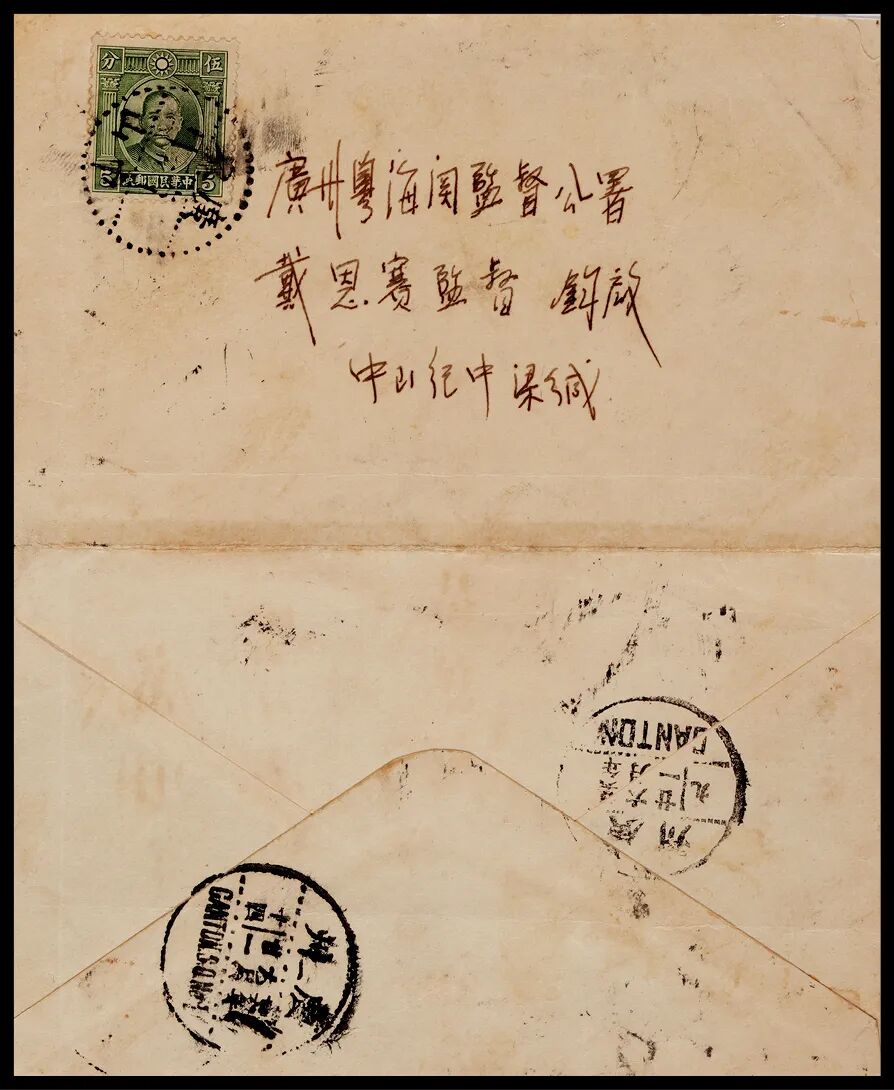 分 伍
5 中華民國郵政 5
廣州粵海関監督公署
戴恩賽監督 鈞啟
中山紀中梁緘
CANTON
年
月
廿六
九
廣
州
廣
州
十四
CANTON